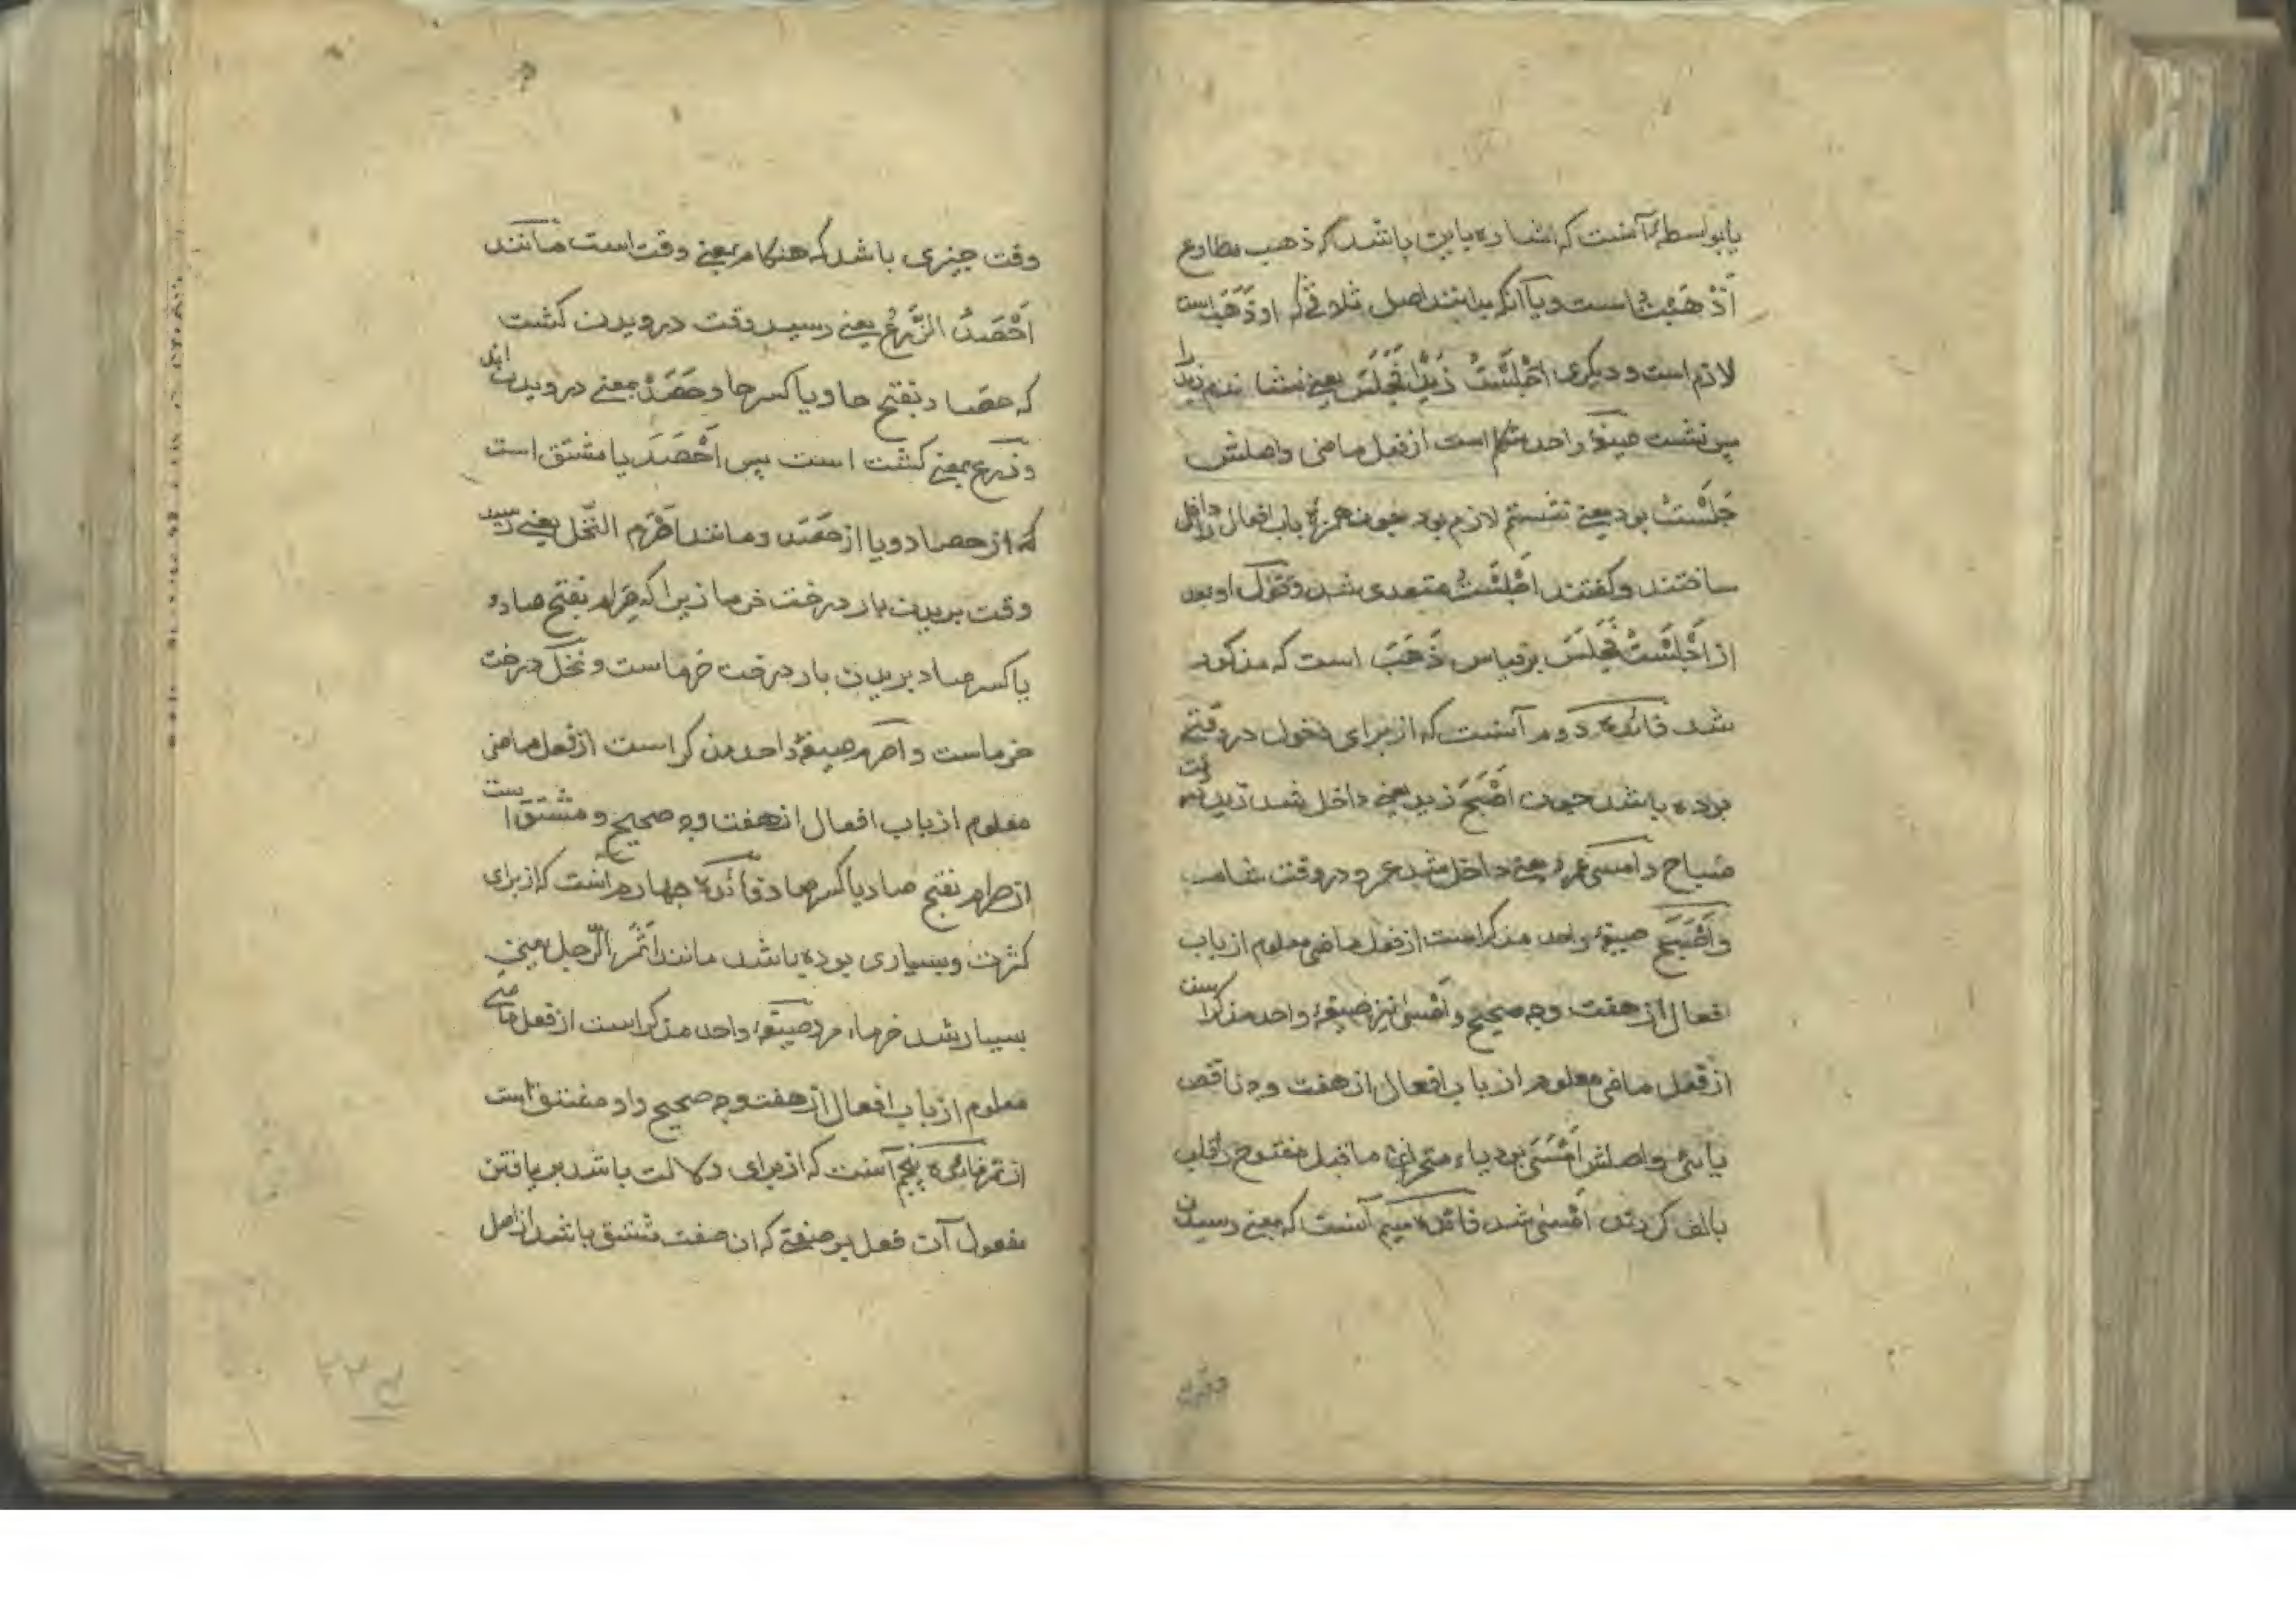 یا بواسطه آنست که اشاره باین باشد که ذهب مطاوع
اَذْهَبْتُ است و یا آنکه بدانند اصل ثلاثی که او ذَهَبَ است
لازم است و دیکری اَجْلَسْتُ زَیْداً فَجَلَسَ یعنی نشاندم زید را
پس نشست صیغهٔ واحد متکلم است از فعل ماضی و اصلش
جَلَسْتُ بود یعنی نشستم لازم بود چون همزهٔ باب افعال را داخل
ساختند و کفتند اَجْلَسْتُ متعدی شد و او بعد
از اَجْلَسْتُ فَجَلَسَ برقیاس ذَهَبَ است که مذکور
شد فائدهٔ دوم آنست که از برای دخول در وقتی
بوده باشد چون اَصْبَحَ زید یعنی داخل شد زید
صباح و امسی عمرو یعنی داخل شد عمرو در وقت شام
و اَصْبَحَ صیغهٔ واحد مذکر است از فعل ماضی معلوم از باب
افعال از هفت وجه صحیح و اَمْسی نیز صیغهٔ واحد مذکر است
از فعل ماضی معلوم از باب افعال از هفت وجه ناقص
یائی و اصلش اَمْسَیَ بود یاء متحرک ماقبل مفتوح را قلب
بالف کردند اَمْسی شد فائدهٔ سیم آنست که بمعنی رسیدن
وقت
وقت چیزی باشد که هنکام بمعنی وقت است مانند
اَحْصَدَ الزَّرْعُ یعنی رسید وقت درویدن کشت
که حصاد بفتح حا و یا کسر حا و حَصَدْ بمعنی درویدن
و زرع بمعنی کشت است پس اَحْصَدَ یا مشتق است
که از حصاد و یا از حَصَد و مانند اَصْرَم النّخل یعنی رسید
وقت بریدن بار درخت خرما زیرا که صِرام بفتح صاد و
یا کسر صاد بریدن بار درخت خرماست و نخل درخت
خرماست و اصرم صیغهٔ واحد مذکر است از فعل ماضی
معلوم از باب افعال از هفت وجه صحیح و مشتق است
از صرام بفتح صاد یا کسر صاد و فائدهٔ چهارم آنست که از برای
کثرت و بسیاری بوده باشد مانند اَثْمَرَ الرّجل یعنی
بسیار شد خرماء مرد صیغهٔ واحد مذکر است از فعل ماضی
معلوم از باب افعال از هفت وجه صحیح و او مشتق است
از ثمر فائدهٔ پنجم آنست که از برای دلالت باشد بر یافتن
مفعول آن فعل بر صفتی که ان صفت مشتق باشد از اصل